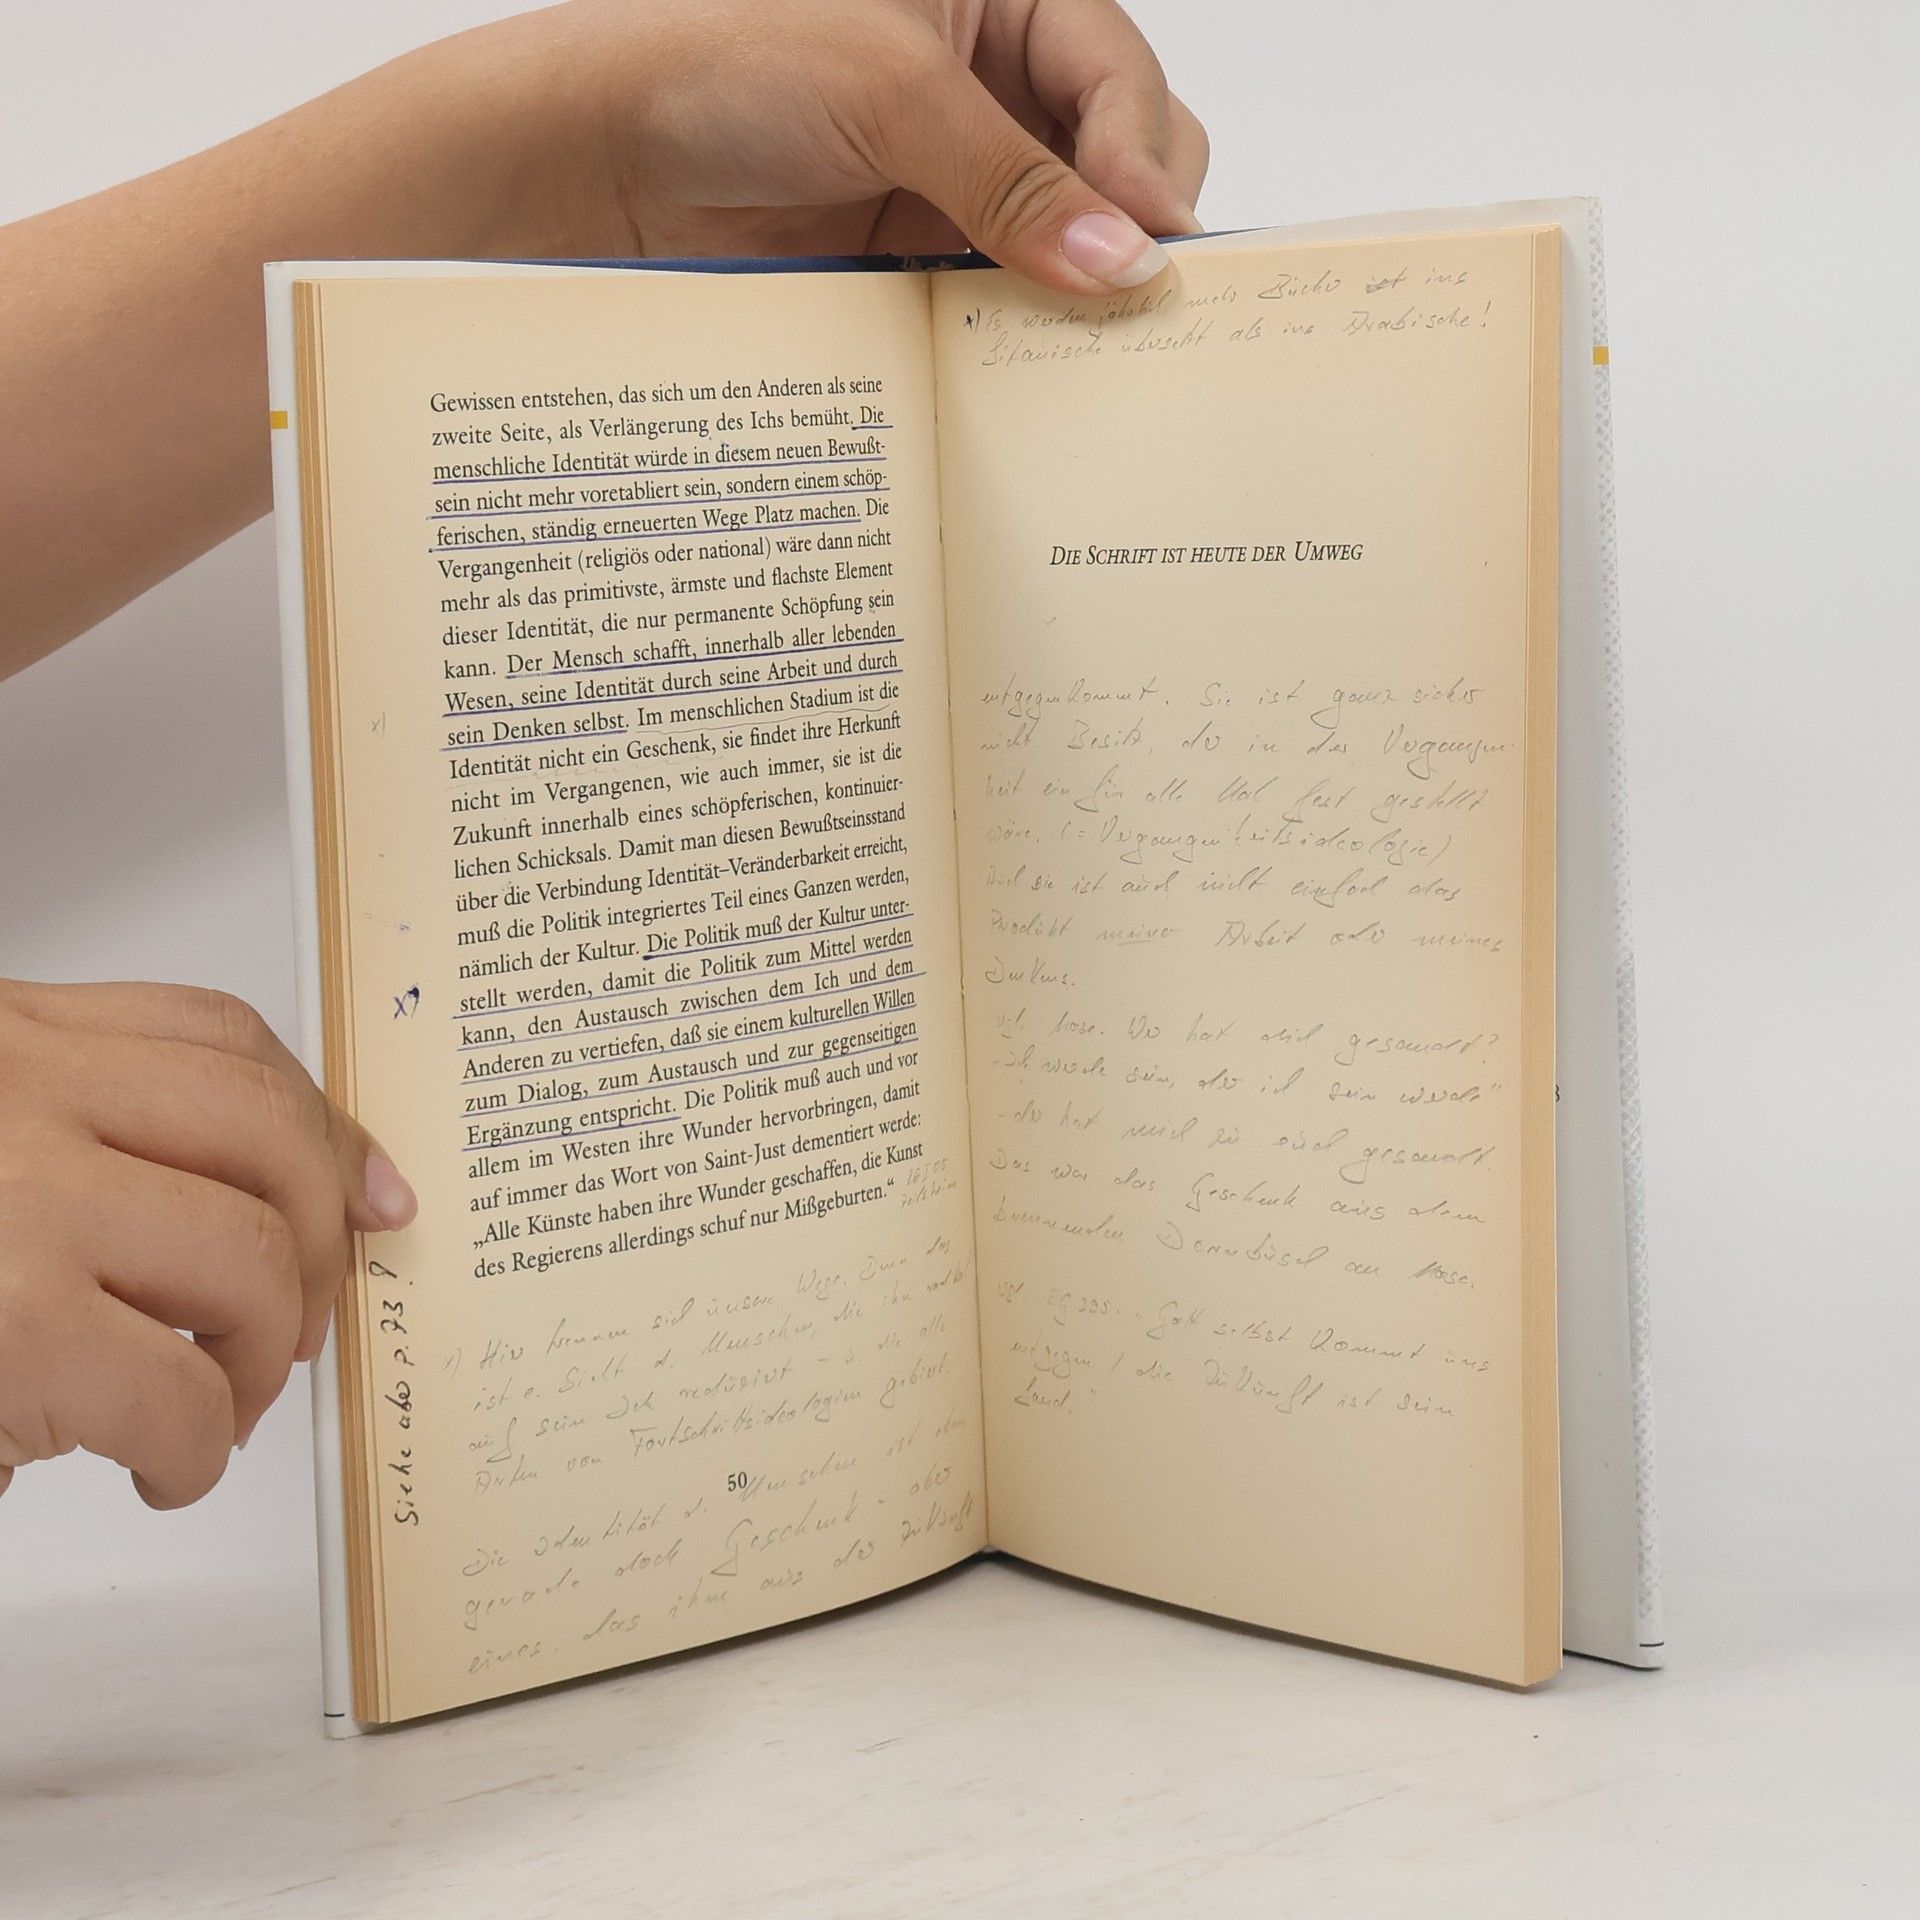 Gewissen entstehen, das sich um den Anderen als seine
zweite Seite, als Verlängerung des Ichs bemüht. Die
menschliche Identität würde in diesem neuen Bewußt-
sein nicht mehr voretabliert sein, sondern einem schöp-
ferischen, ständig erneuerten Wege Platz machen. Die
Vergangenheit (religiös oder national) wäre dann nicht
mehr als das primitivste, ärmste und flachste Element
dieser Identität, die nur permanente Schöpfung sein
kann. Der Mensch schafft, innerhalb aller lebenden
Wesen, seine Identität durch seine Arbeit und durch
sein Denken selbst. Im menschlichen Stadium ist die
Identität nicht ein Geschenk, sie findet ihre Herkunft
nicht im Vergangenen, wie auch immer, sie ist die
Zukunft innerhalb eines schöpferischen, kontinuier-
lichen Schicksals. Damit man diesen Bewußtseinsstand
über die Verbindung Identität–Veränderbarkeit erreicht,
muß die Politik integriertes Teil eines Ganzen werden,
nämlich der Kultur. Die Politik muß der Kultur unter-
stellt werden, damit die Politik zum Mittel werden
kann, den Austausch zwischen dem Ich und dem
Anderen zu vertiefen, daß sie einem kulturellen Willen
zum Dialog, zum Austausch und zur gegenseitigen
Ergänzung entspricht. Die Politik muß auch und vor
allem im Westen ihre Wunder hervorbringen, damit
auf immer das Wort von Saint-Just dementiert werde:
„Alle Künste haben ihre Wunder geschaffen, die Kunst
des Regierens allerdings schuf nur Mißgeburten.“
x)
x)
Siehe aber p. 73!
x) Hier trennen sich unsere Wege. Denn das
ist e. Sicht d. Menschen, die ihn
auf sein Ich reduziert – u. die alle
Arten von Fortschrittsideologien gebiert.
50
Die Identität d. Menschen ist eben
gerade doch Geschenk - aber
eines, das ihm aus der Zukunft
x) Es werden jährlich mehr Bücher ins
Litauische übersetzt als ins Arabische!
DIE SCHRIFT IST HEUTE DER UMWEG
entgegenkommt. Sie ist ganz sicher
nicht Besitz, der in der Vergangen-
heit ein für alle Mal fest gestellt
wäre. (= Vergangenheitsideologie)
Und sie ist auch nicht einfach das
Produkt meiner Arbeit oder meines
Denkens.
vgl. Mose: Wer hat mich gesandt?
"Ich werde sein, der ich sein werde"
- der hat mich zu euch gesandt.
Das war das Geschenk aus dem
brennenden Dornbusch an Mose.
vgl. EG 395: "Gott selbst kommt uns
entgegen / die Zukunft ist sein
Land."